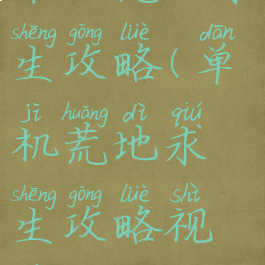 shēng gōng lüè dān
生攻略(单
jī huāng dì qiú
机荒地求
shēng gōng lüè shì
生攻略视